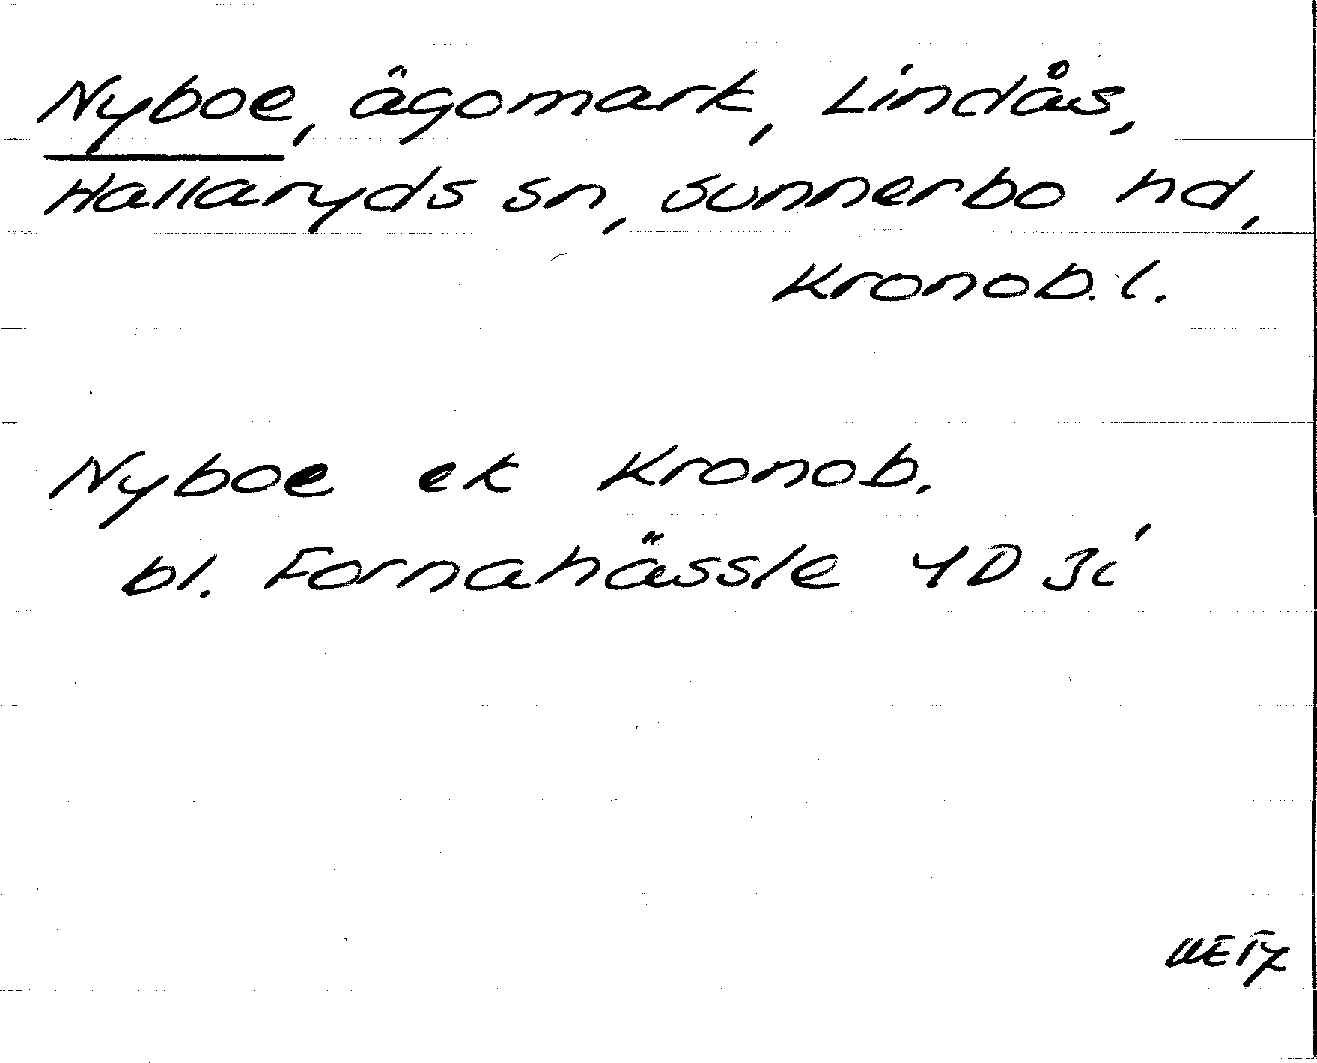 Nyboe, ägomark, Lindås,
Hallaryds sn, Sunnerbo hd,
Kronob. l.
Nyboe ek Kronob.
bl. Fornahässle 4D 3i